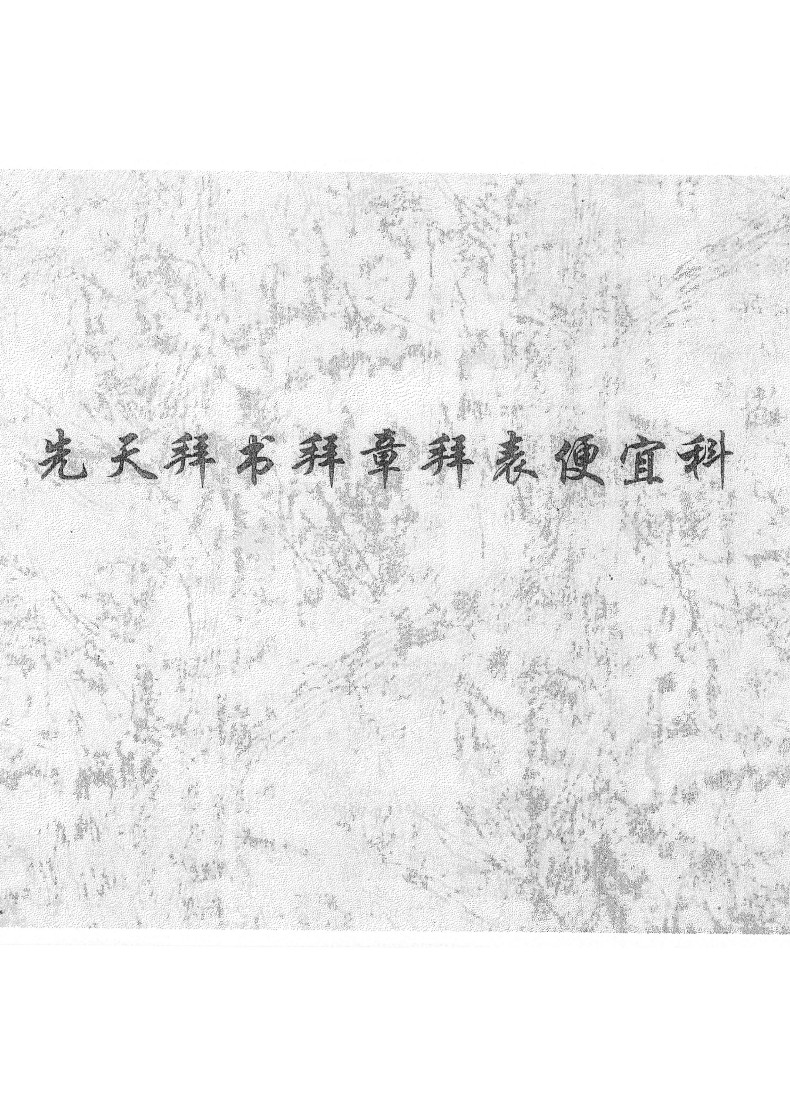 先天拜书拜章拜表便宜科